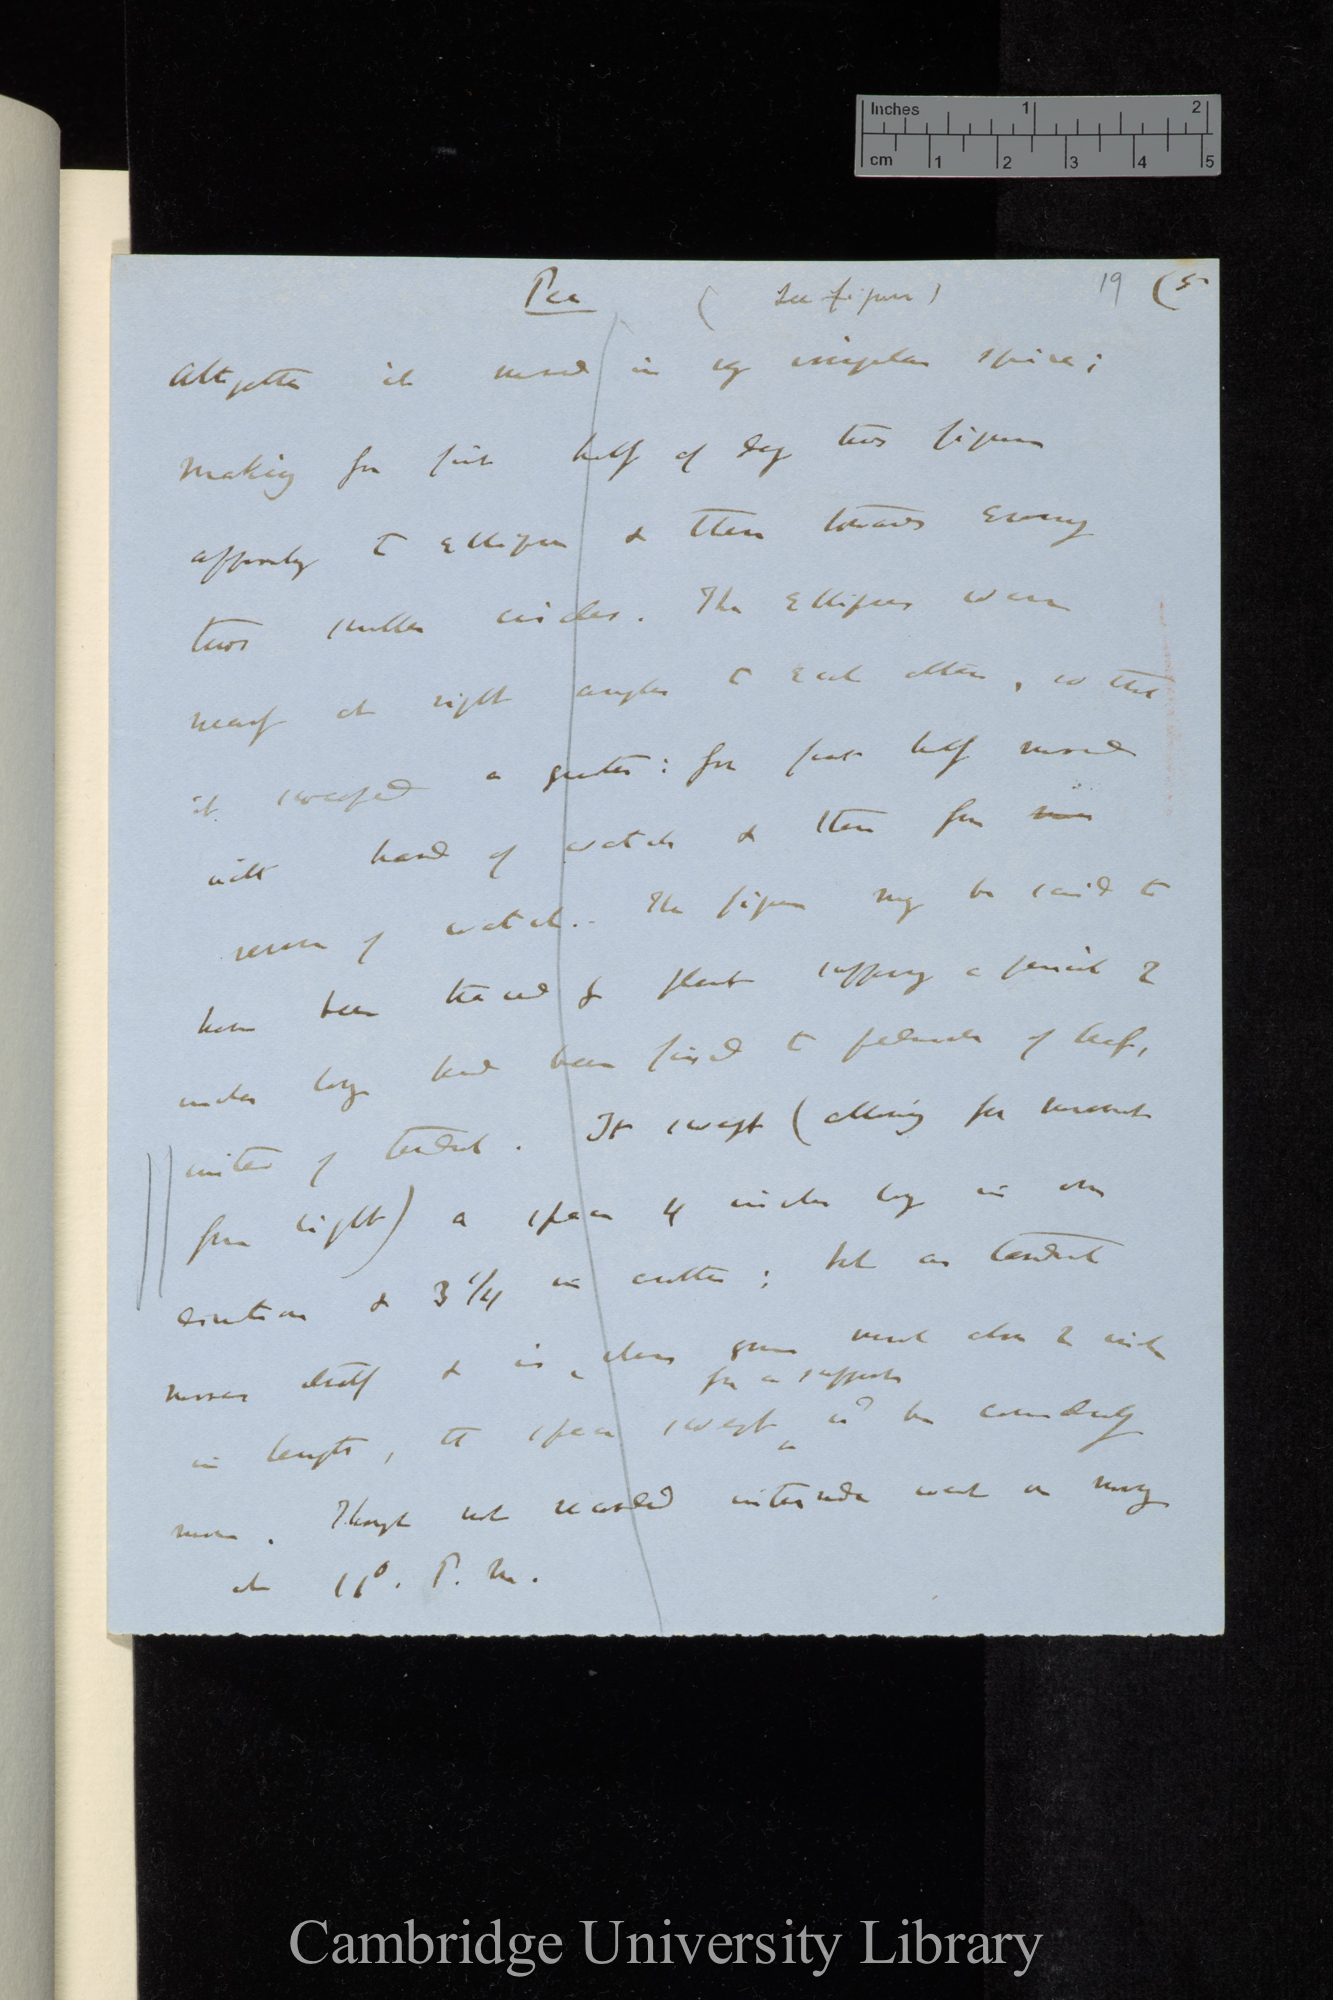 Inches 1 2
cm 1 2 3 4 5
Pea (See figure) 19 (5
Altogether it moved in irregular spire;
making for first half of day two figures
approachg to Ellipses & then towards Evening
two smaller circles. The Ellipses were
nearly at right angles to Each other, so that
it sweeped a greater: for first half moved
with hand of watch & then for
reverse of watch. The figure may be said to
have been traced if plant supposing a pencil 2
inches long had been fixed to peduncle of leaf,
instead of tendril. It swept (allowing for movement
from light) a space 4 inches long in one
direction & 3 1/4 in another; but as tendril
moves itself & is when grown much above 2 inch
for a support
in length, the space swept wd be considerably
more. Though not recorded internode went on moving
at 11°. P. M.
Cambridge University Library